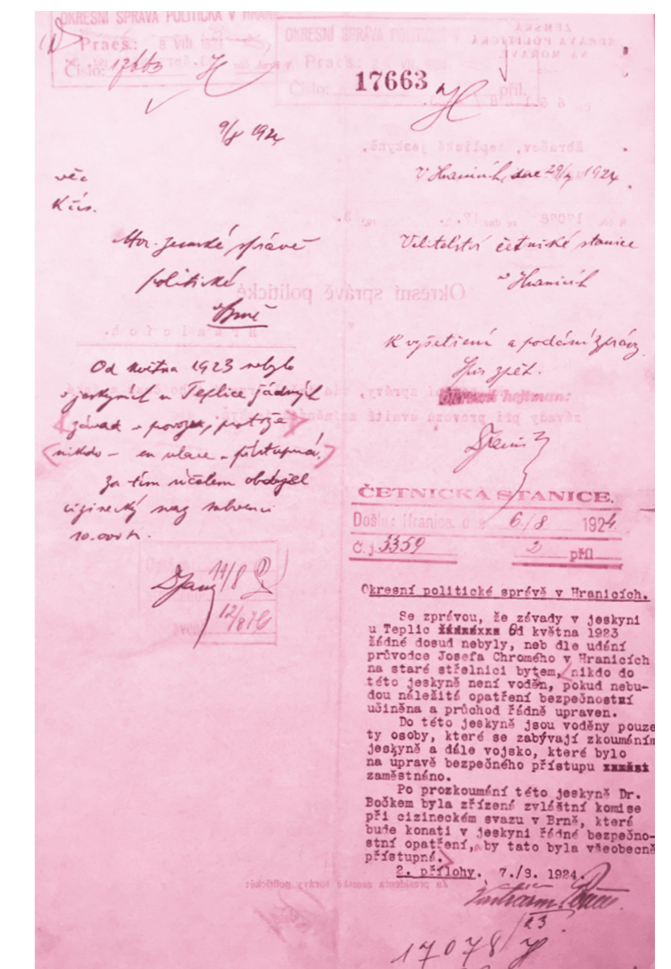 OKRESNÍ SPRÁVA POLITICKÁ V HRAN
Praes.: 8 VIII 192
Číslo: 17663
9/8 1924
věc
K čís.
Mor. zemské správě
politické
v Brně
Od května 1923 nebylo
v jeskyních u Teplice žádných
závad v provozu, protože
nikdo
Za tím účelem obdržel
cizinecký svaz subvenci
10.000 K.
14/8
12/8
OKRESNÍ SPRÁVA POLITICKÁ
Praes.:
Číslo:
příl.
17663
V Hranicích, dne 29/7 1924
Velitelství četnické stanice
v Hranicích
K vyšetření a podání zprávy.
Spis zpět.
hejtman:
ČETNICKÁ STANICE.
Došlo: Hranice, dne 6/8 1924
Č.j. 3359 2 příl
Okresní politické správě v Hranicích.
Se zprávou, že závady v jeskyni
u Teplic od května 1923
žádné dosud nebyly, neb dle udání
průvodce Josefa Chromého v Hranicích
na staré střelnici bytem, nikdo do
této jeskyně není voděn, pokud nebu-
dou náležité opatření bezpečnostní
učiněna a průchod řádně upraven.
Do této jeskyně jsou voděny pouze
ty osoby, které se zabývají zkoumáním
jeskyně a dále vojsko, které bylo
na úpravě bezpečného přístupu
zaměstnáno.
Po prozkoumání této jeskyně Dr.
Bočkem byla zřízená zvláštní komise
při cizineckém svazu v Brně, která
bude konati v jeskyni řádné bezpečno-
stní opatření, by tato byla všeobecně
přístupné.
2. přílohy. 7./8. 1924.
23
17078